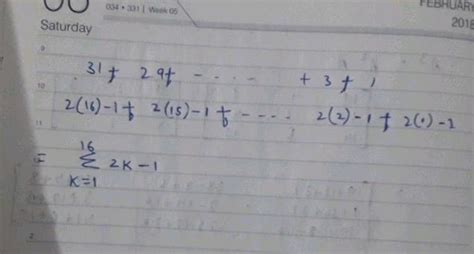 034 • 331 | Week 05
FEBRUARY
2018
Saturday
9
31 + 29 + - - - - + 3 + 1
10
2(16)-1 + 2(15)-1 + - - - - 2(2)-1 + 2(1)-1
11
= 16
Σ 2K-1
K=1
2